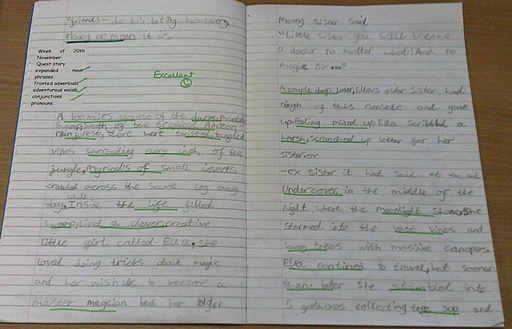 friends- do his bitty how every
rude or mean it is.
Week of 20th
November
Quest story
expanded noun
phrases
fronted adverbials
adventurous vocab
conjunctions
pronouns
Excellent
A 100 miles
swamp south of the tropical
rainforest, there were twisted, tangled
vines surrounding every inch of the
jungle, Myriads of small insects
crawled across the same log every
day, Inside the life filled
swamp, lived a clever, creative
little girl called Ella, she
loved doing tricks about magic
and her wish is to become a
master magician but her older
moany sister said,
"Little sister you will become
a doctor no matter what! And no
magic ok..."
A couple days later, Ella's older sister had
enough of this nonsense and gave
up. Feeling mixed up, Ella scribbled a
harsh, scrunched up letter for her
sister:or
-ex sister it had said at the end
Undercover in the middle of the
night, where the moonlight shone, she
stormed into the vast vines and
long trees with massive canopes.
Ella continued to travel, but sooner
then later she stumbled into
5 gatherers collecting tree sap and